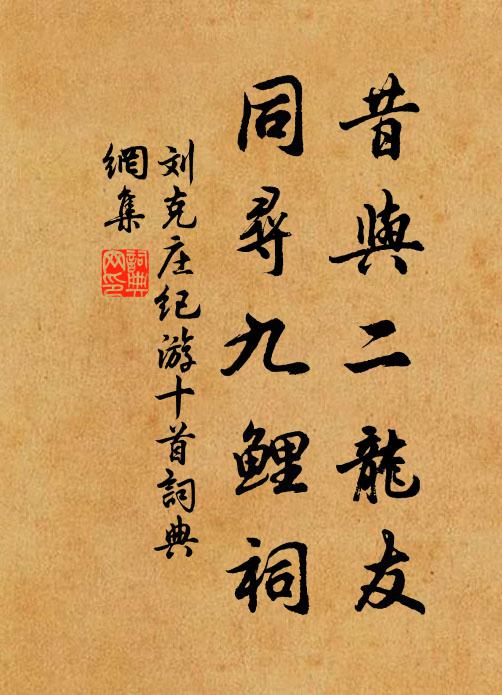 昔與二龍友
同尋九鯉祠
刘克庄纪游十首詞典
網集
詞典
网印